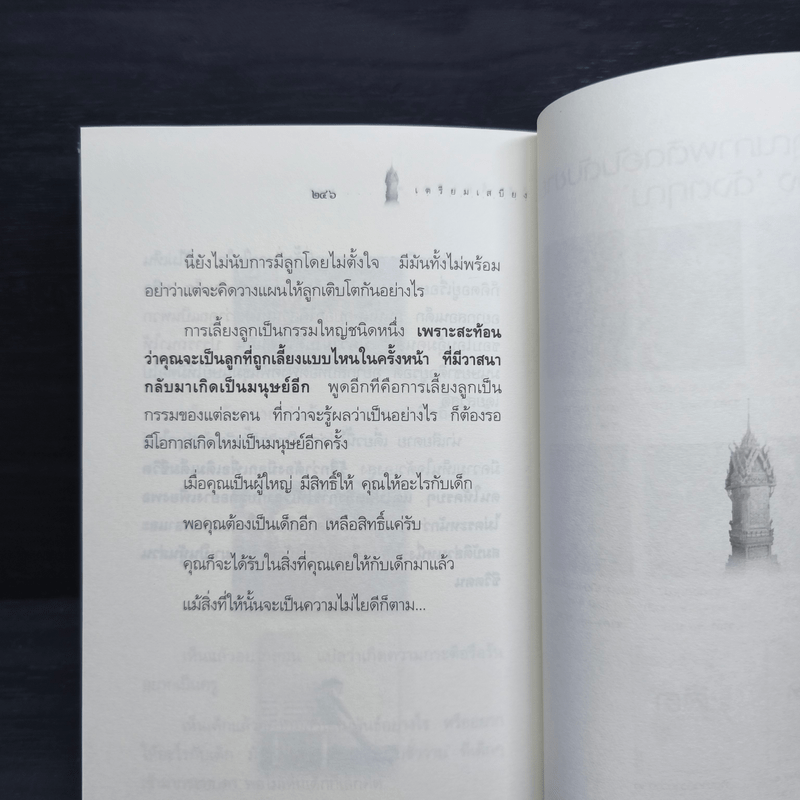 ๒๔๖
เตรียมเสบียง
นี่ยังไม่นับการมีลูกโดยไม่ตั้งใจ มีมันทั้งไม่พร้อม
อย่าว่าแต่จะคิดวางแผนให้ลูกเติบโตกันอย่างไร
การเลี้ยงลูกเป็นกรรมใหญ่ชนิดหนึ่ง เพราะสะท้อน
ว่าคุณจะเป็นลูกที่ถูกเลี้ยงแบบไหนในครั้งหน้า ที่มีวาสนา
กลับมาเกิดเป็นมนุษย์อีก พูดอีกทีคือการเลี้ยงลูกเป็น
กรรมของแต่ละคน ที่กว่าจะรู้ผลว่าเป็นอย่างไร ก็ต้องรอ
มีโอกาสเกิดใหม่เป็นมนุษย์อีกครั้ง
เมื่อคุณเป็นผู้ใหญ่ มีสิทธิ์ให้ คุณให้อะไรกับเด็ก
พอคุณต้องเป็นเด็กอีก เหลือสิทธิ์แค่รับ
คุณก็จะได้รับในสิ่งที่คุณเคยให้กับเด็กมาแล้ว
แม้สิ่งที่ให้นั้นจะเป็นความไม่ไยดีก็ตาม...